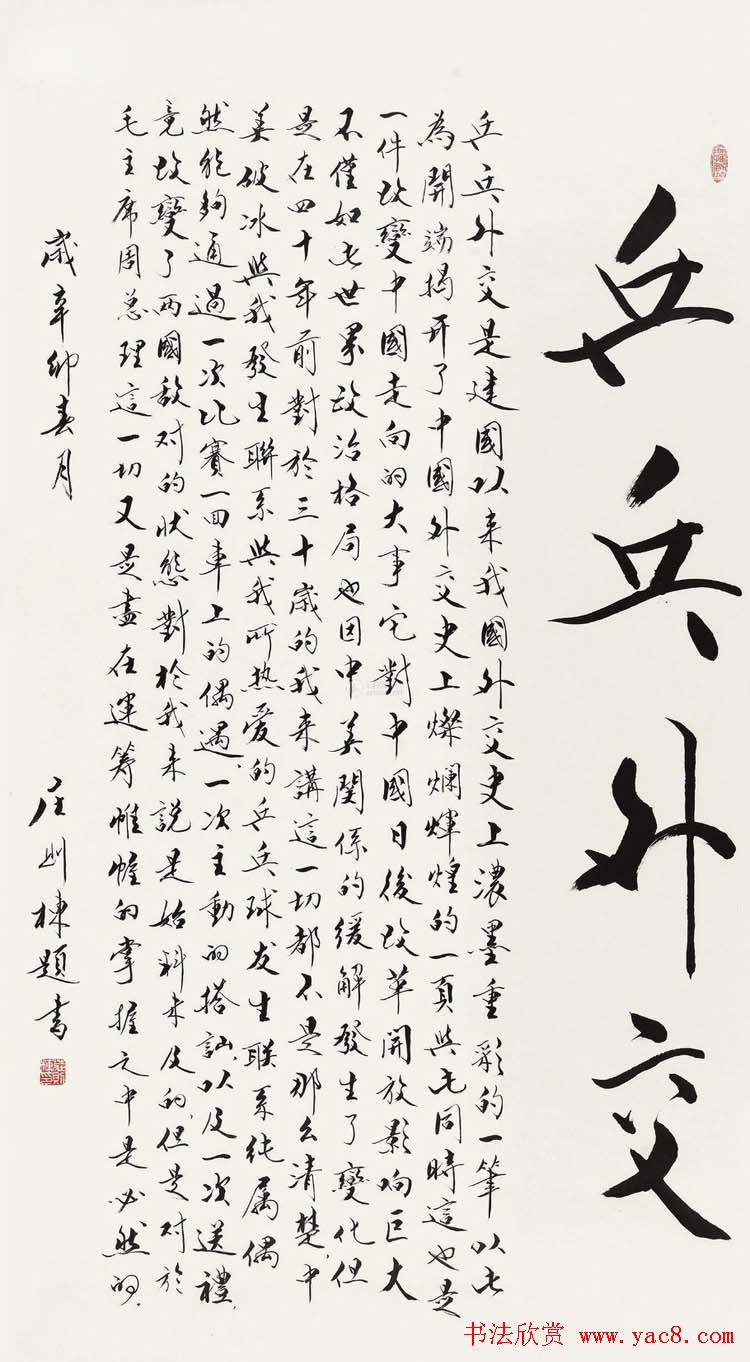 乒乓外交
乒乓外交是建國以来我國外交史上濃墨重彩的一筆以此
為開端揭开了中國外交史上燦爛輝煌的一頁與此同時這也是
一件改變中國走向的大事它對中國日後改革開放影响巨大
不僅如此世界政治格局也因中美関係的缓解發生了變化但
是在四十年前對於三十歲的我来講這一切都不是那么清楚,中
美破冰與我發生聯系與我所热爱的乒乓球发生联系纯属偶
然能夠通過一次比賽一回車上的偶遇,一次主動的搭訕,以及一次送禮,
竟改變了两國敌对的状態對於我来説是始料未及的,但是对於
毛主席周总理這一切又是盡在運筹帷幄的掌握之中是必然的,
歲辛卯春月
庄则棟題書
书法欣赏 www.yac8.com